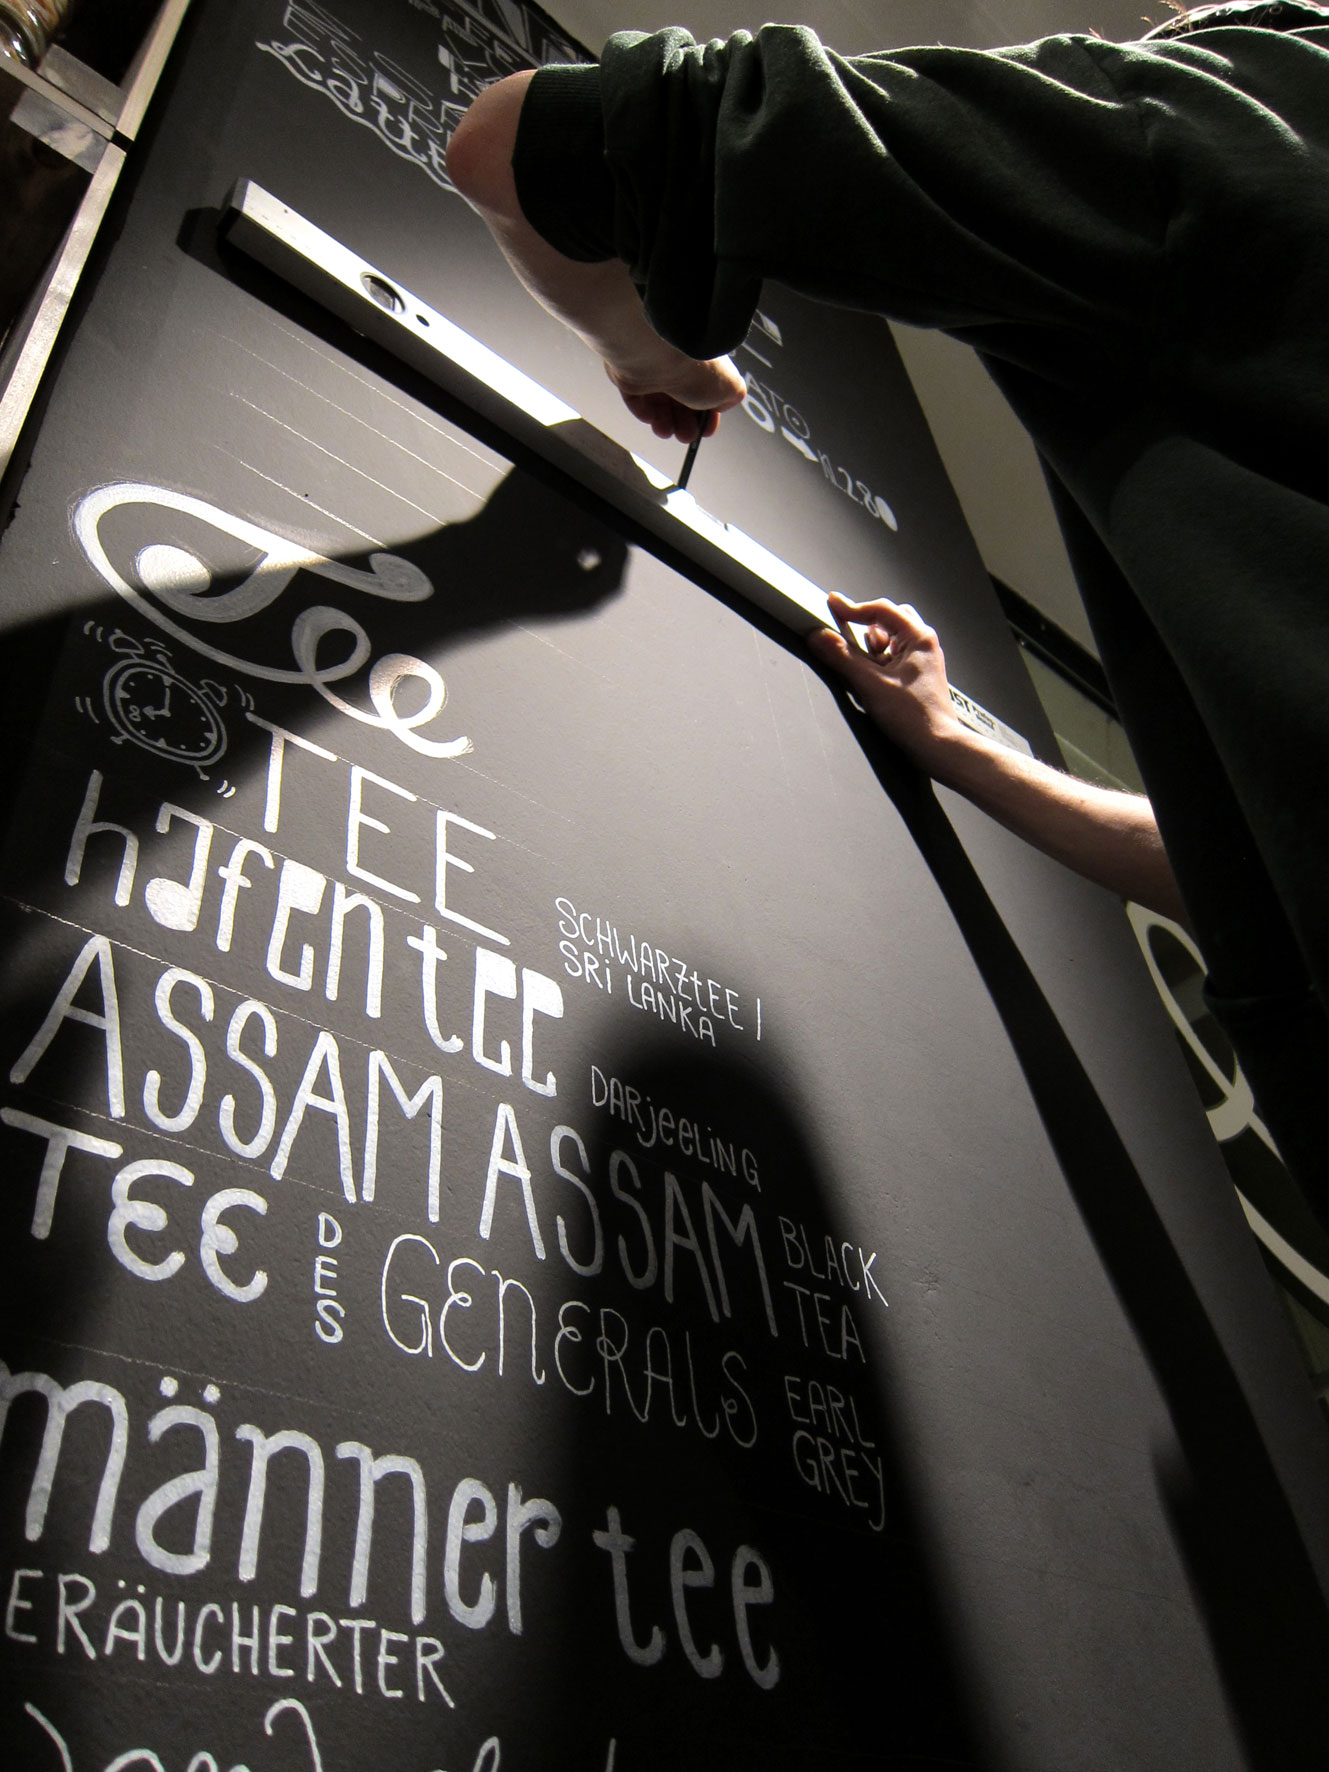 2.80
Tee
8
TEE
hafentee
SCHWARZtEE |
SRi LANKA
ASSAM ASSAM
DARjeeLiNG
BLACK
TEA
TEE DES GENERALS
EARL
GREY
männertee
ERÄUCHERTER